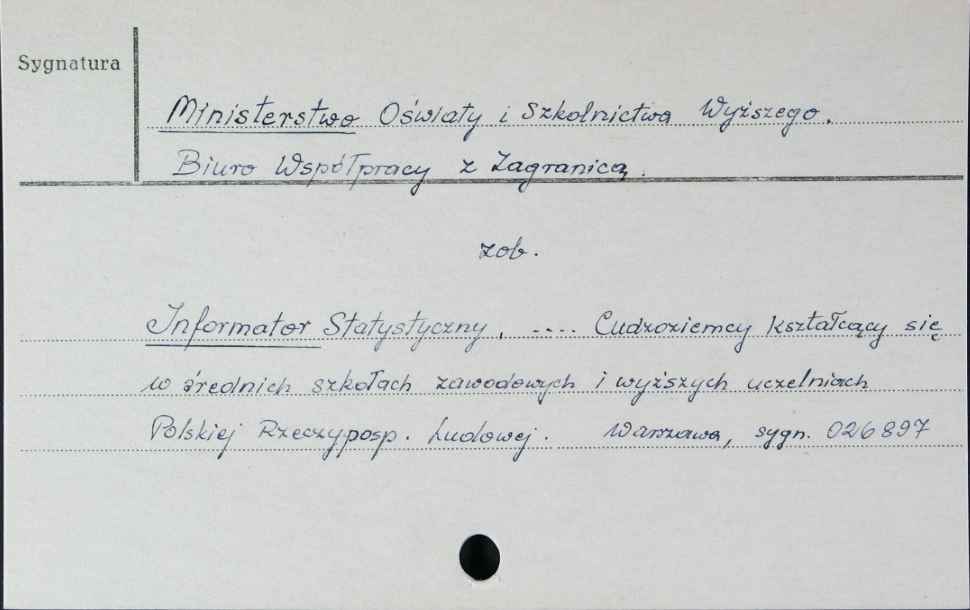 Sygnatura
Ministerstwo Oświaty i Szkolnictwa Wyższego.
Biuro Współpracy z Zagranicą.
zob.
Informator Statystyczny, .... Cudzoziemcy kształcący się
w średnich szkołach zawodowych i wyższych uczelniach
Polskiej Rzeczyposp. Ludowej. Warszawa, sygn. 026897